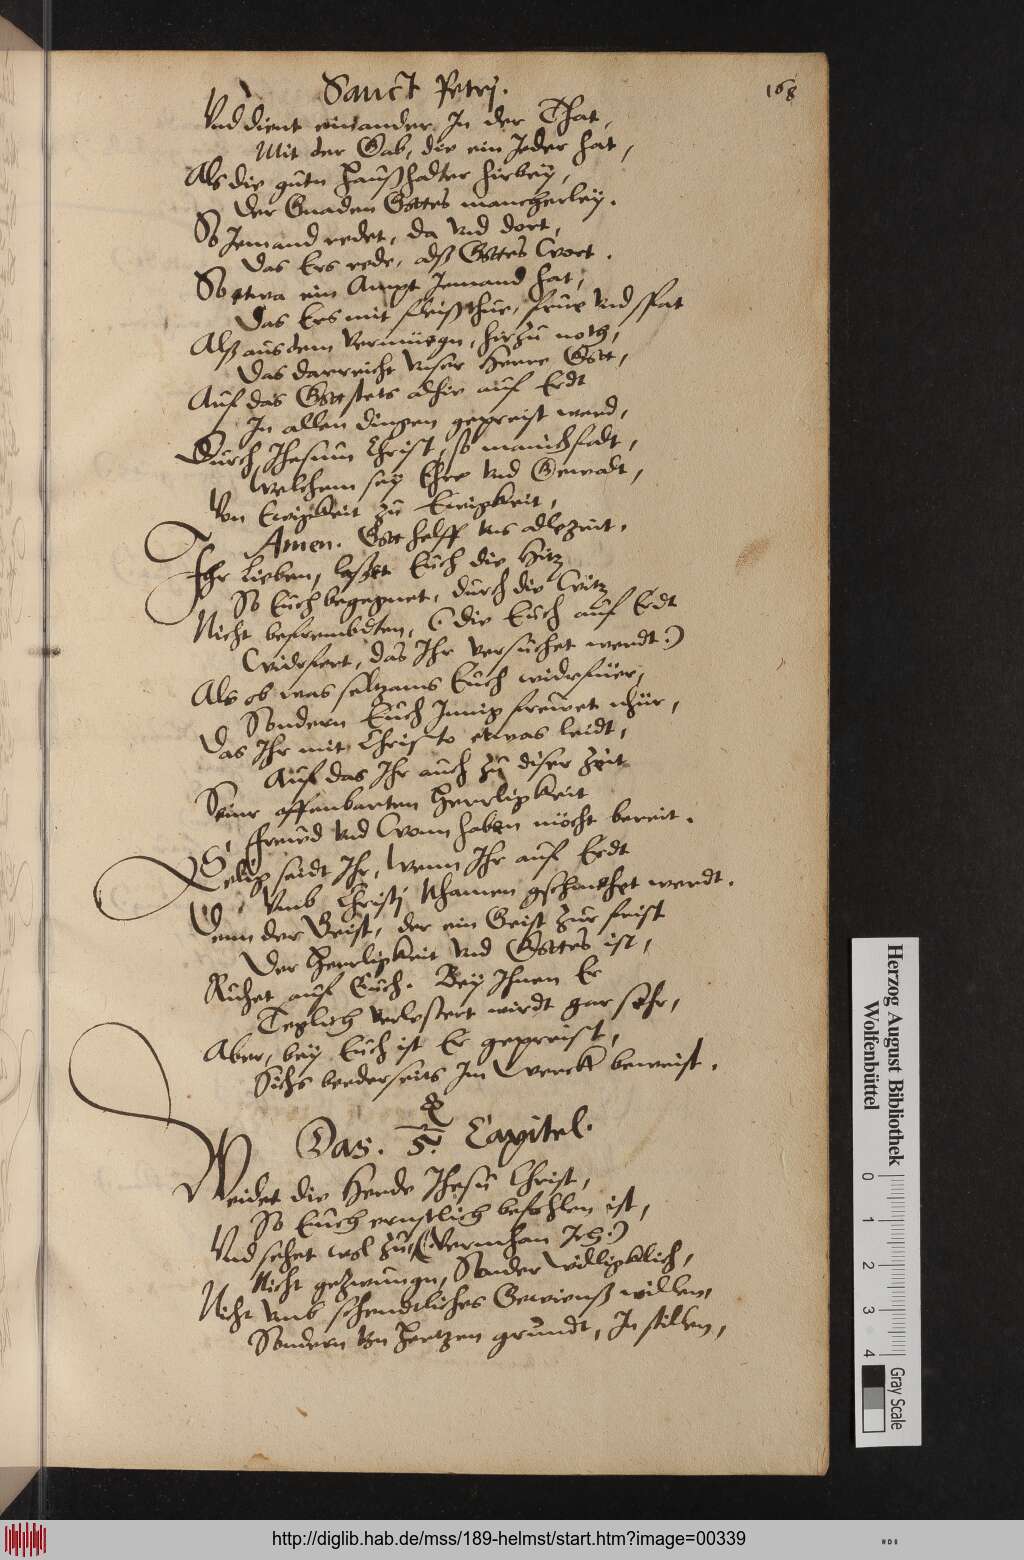 Sanct Petrj.
168
Vnd dient einander In der That,
Mit der Gab, die ein Jeder hat,
Als die gutn Haußhalter hirbey,
Der Gnaden Gottes mancherley.
So Jemand redet, da vnd dort,
Das Ers rede, alß Gottes Wort.
So etwa ein Ampt Jemand hat,
Das Ers mit fleiß thue, frue vnd spat
Alß aus dem vermüegn, hirzu noth,
Das darreicht vnser Herre Gott,
Auf das Gott stets alhie auf Erdt
In allen dingen gepreist werd,
Durch Jhesum Christ, so manichfalt,
Welchem sey Ehre vnd Gewalt,
Von Ewigkeit zu Ewigkeit,
Amen. Gott helff vns allezeit.
Ihr lieben, laßet Euch die Hitz
So Euch begegnet, durch die Witz
Nicht befrembdten, (: die Euch auf Erdt
Widrfert, das Ihr versuchet werdt:)
Als ob was seltzams Euch widrfüer,
Sondern Euch Innig frewet nhür,
Das Ihr mit Christo etwas leidt,
Auf das Ihr auch zu diser Zeit
Seinr offenbarten Herrligkeit
Freud vnd Wonn haben möcht bereit.
Selig seidt Ihr, Wenn Ihr auf Erdt
Vmb Christj Nhamen gschmehet werdt.
Denn der Geist, der ein Geist zur frist
Der Herrligkeit vnd Gottes ist,
Ruhet auf Euch. Bey Ihnen Er
Teglich verlestert wirdt gar sehr,
Aber, bey Euch ist Er gepreist,
Sichs beederseits Im Werck beweist.
Das. 5. Capitel.
Weidet die Herde Jhesu Christ,
So Euch ernstlich befohlen ist,
Vnd sehet wol zu, (: Vermhan Ich:)
Nicht gezwungn, Sonder willigklich,
Nicht vmb schendtliches Gewienß willen,
Sondern von Hertzen grundt, In stillen,
Herzog August Bibliothek
Wolfenbüttel
0 1 2 3 4
Gray Scale
http://diglib.hab.de/mss/189-helmst/start.htm?image=00339